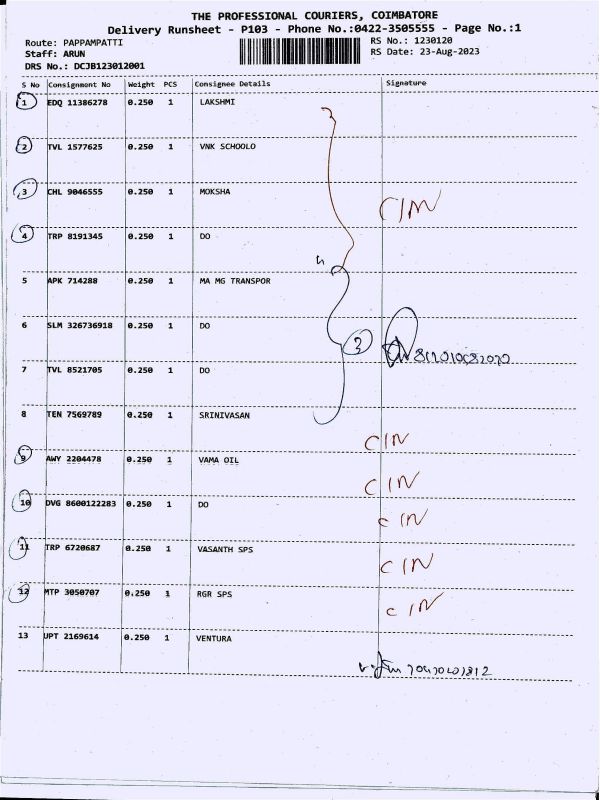 THE PROFESSIONAL COURIERS, COIMBATORE
Delivery Runsheet - P103 - Phone No.:0422-3505555 - Page No.:1
Route: PAPPAMPATTI RS No.: 1230120
Staff: ARUN RS Date: 23-Aug-2023
DRS No.: DCJB123012001
S No Consignment No Weight PCS Consignee Details Signature
1 EDQ 11386278 0.250 1 LAKSHMI
2 TVL 1577625 0.250 1 VNK SCHOOLO
3 CHL 9046555 0.250 1 MOKSHA
CIN
4 TRP 8191345 0.250 1 DO
5 APK 714288 0.250 1 MA MG TRANSPOR
6 SLM 326736918 0.250 1 DO
3
7 TVL 8521705 0.250 1 DO
8 TEN 7569789 0.250 1 SRINIVASAN
CIN
9 AWY 2204478 0.250 1 VAMA OIL
CIN
10 DVG 8600122283 0.250 1 DO
CIN
11 TRP 6720687 0.250 1 VASANTH SPS
CIN
12 MTP 3050707 0.250 1 RGR SPS
CIN
13 UPT 2169614 0.250 1 VENTURA